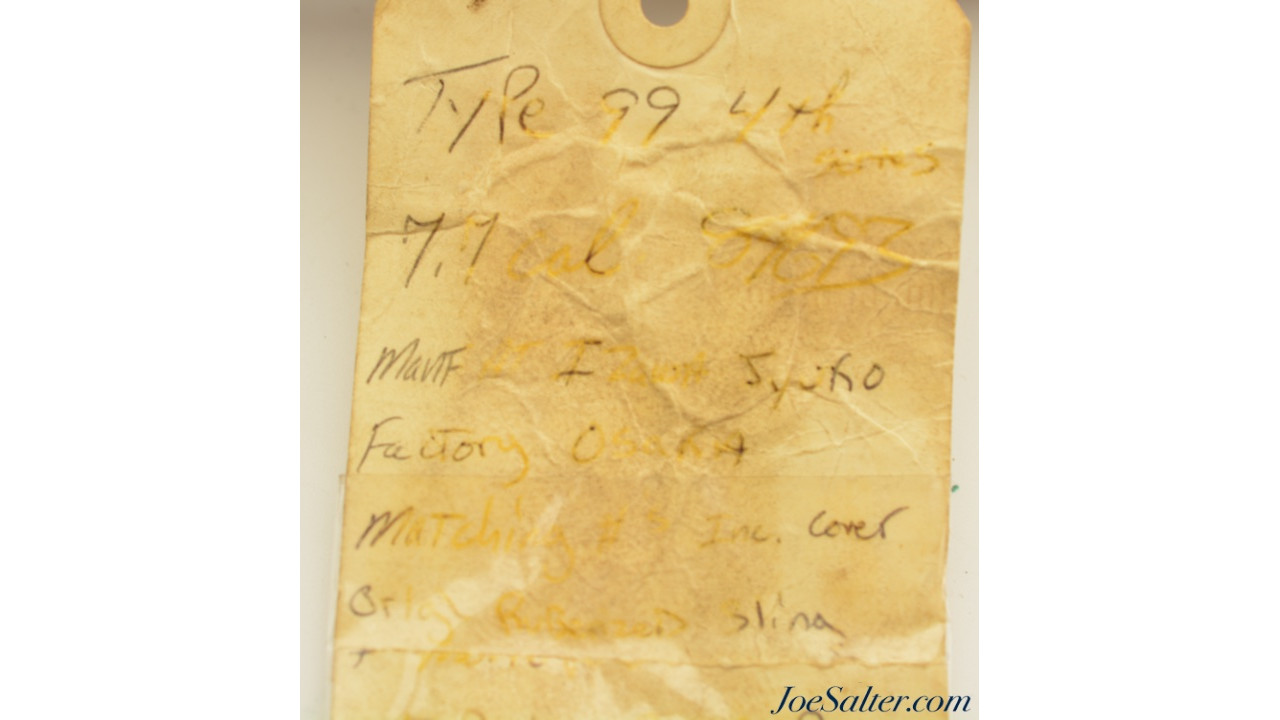 Type 99 4th
series
7.7 cal
Manf I Jyuko
Factory Osaka
Matching #s Inc. Cover
Orig Rubberized Sling
+
JoeSalter.com